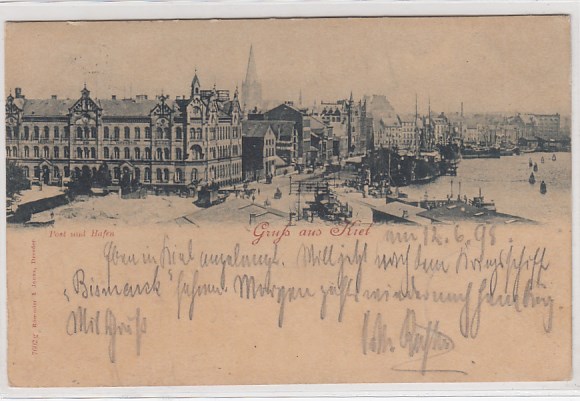 Post und Hafen
Gruß aus Kiel
am 12.6.98
Eben in Kiel angelangt. Will jetzt nach dem Kriegsschiff
"Bismarck" fahren. Morgen wieder nach Hamburg
Mit Gruß